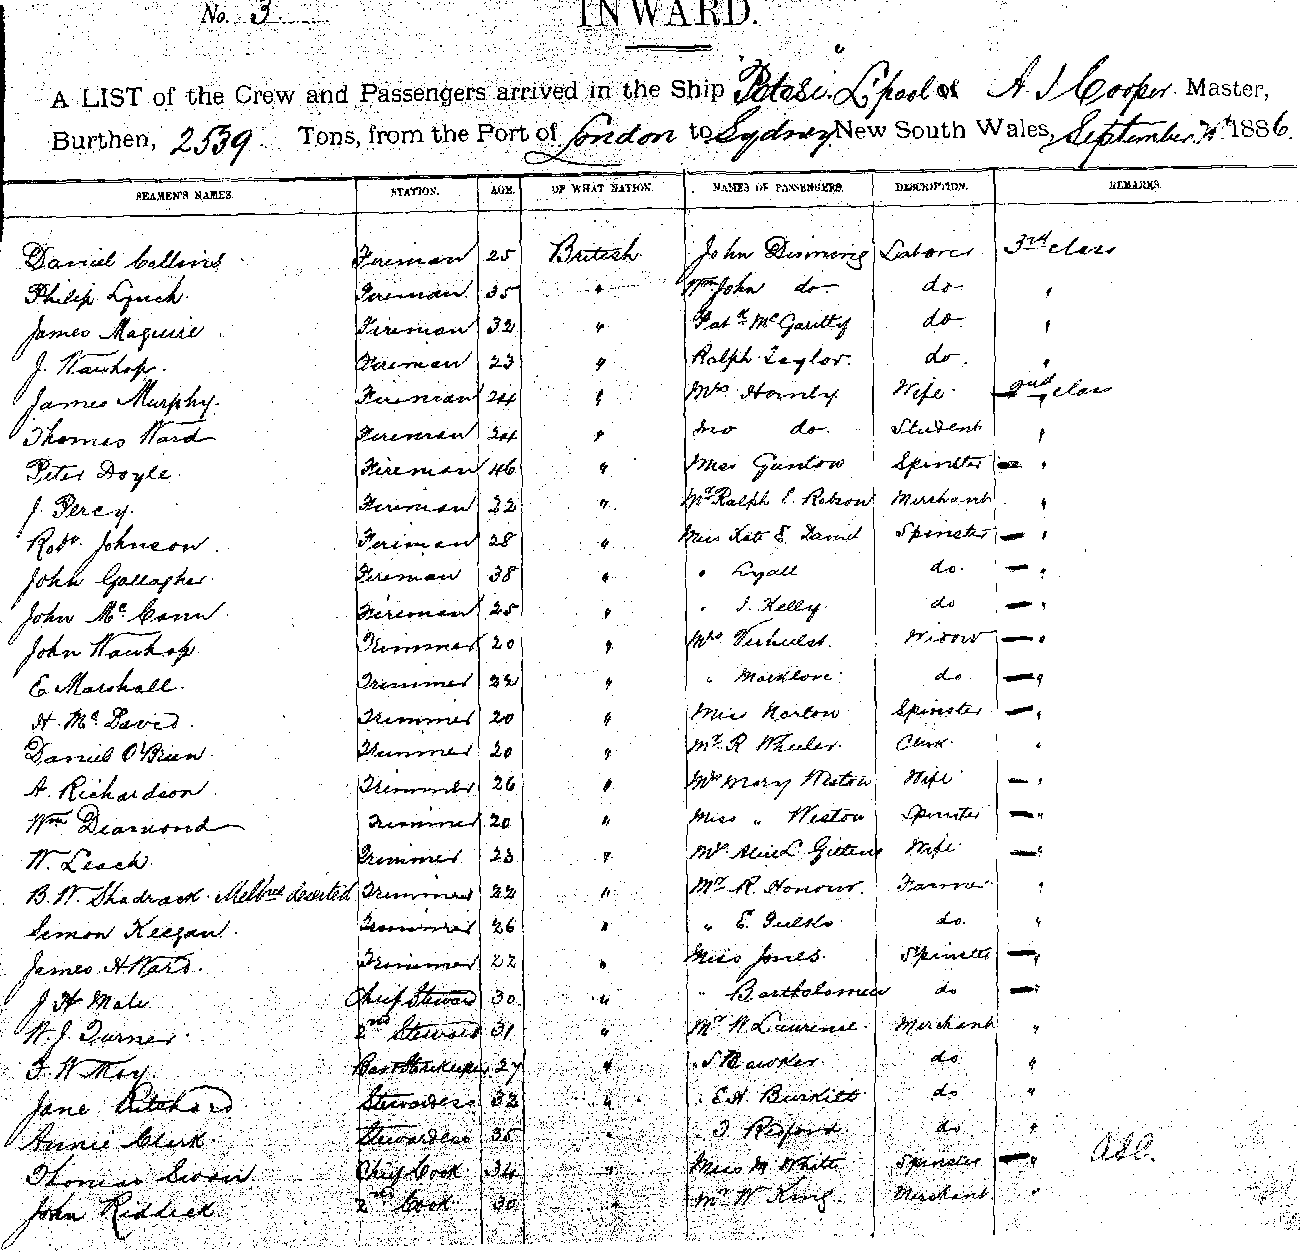 No. 3
INWARD.
A LIST of the Crew and Passengers arrived in the Ship "Potosi" L'pool of A J Cooper Master,
Burthen, 2539 Tons, from the Port of London to Sydney New South Wales, September 1886.
SEAMEN'S NAMES. STATION. AGE. OF WHAT NATION. NAMES OF PASSENGERS. DESCRIPTION. REMARKS.
Daniel Collins Fireman 25 British John Dimming Laborer 3rd class
Philip Lynch Fireman 35 " Wm John do do "
James Maguire Fireman 32 " Patk McGaritty do "
J. Wauhop Fireman 23 " Ralph Taylor do "
James Murphy Fireman 24 " Mrs Hornby Wife 2nd class
Thomas Ward Fireman 34 " do Student "
Peter Doyle Fireman 46 " Miss Spinster "
J. Percy Fireman 22 " Mr Ralph E. Robson Merchant "
Robt. Johnson Fireman 28 " Miss Kate E. David Spinster "
John Gallagher Fireman 38 " " Lyall do "
John McCann Fireman 25 " " J. Kelly do "
John Wauhop Trimmer 20 " Mrs Verhulst Widow "
E. Marshall Trimmer 22 " " Marklove do "
H. McDavid Trimmer 20 " Miss Norton Spinster "
Daniel O'Brien Trimmer 20 " Mr. R Wheeler Clerk "
A. Richardson Trimmer 26 " Mrs Mary Weston Wife "
Wm Diamond Trimmer 20 " Miss " Weston Spinster "
W. Leach Trimmer 23 " Mrs Alice L. Gittens Wife "
B. W. Shadrack Melbne deserted Trimmer 22 " Mr R. Honour Farmer "
Simon Keegan Trimmer 26 " " E. do "
James H Ward Trimmer 22 " Miss Jones Spinster "
J H Male Chief Steward 30 " " Bartholomew do "
W. J. Turner 2nd Steward 31 " Mr W Laurense Merchant "
F. W May Storekeeper 27 " " J Bawden do "
Jane Pritchard Stewardess 32 " " E H Burkitt do "
Annie Clark Stewardess 35 " " J Redford do "
Thomas Swan Chief Cook 34 " Miss M White Spinster "
John Riddick 2nd Cook 30 " Mr W King Merchant "